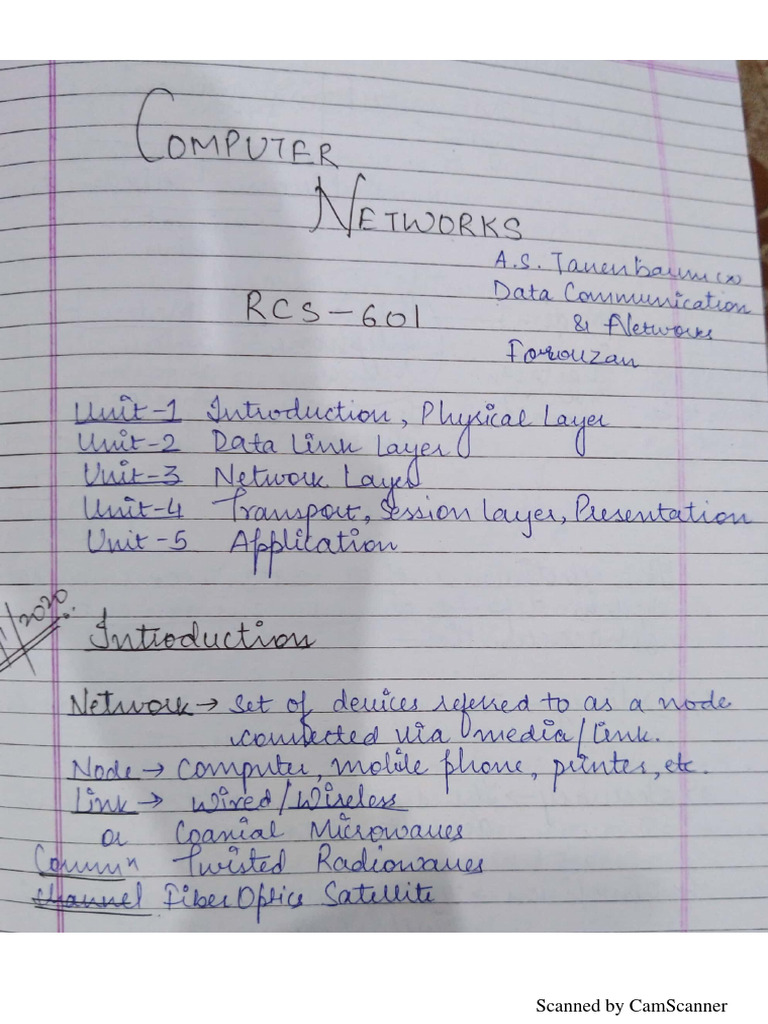 COMPUTER
NETWORKS
A.S. Tanenbaum
Data Communication
& Networks
Forouzan
RCS-601
Unit-1 Introduction, Physical Layer
Unit-2 Data Link Layer
Unit-3 Network Layer
Unit-4 Transport, Session Layer, Presentation
Unit-5 Application
/2020
Introduction
Network → Set of devices referred to as a node
connected via media/link.
Node → Computer, mobile phone, printer, etc.
Link → Wired/Wireless
or Coaxial Microwaves
Commⁿ Twisted Radiowaves
channel Fiber Optics Satellite
Scanned by CamScanner